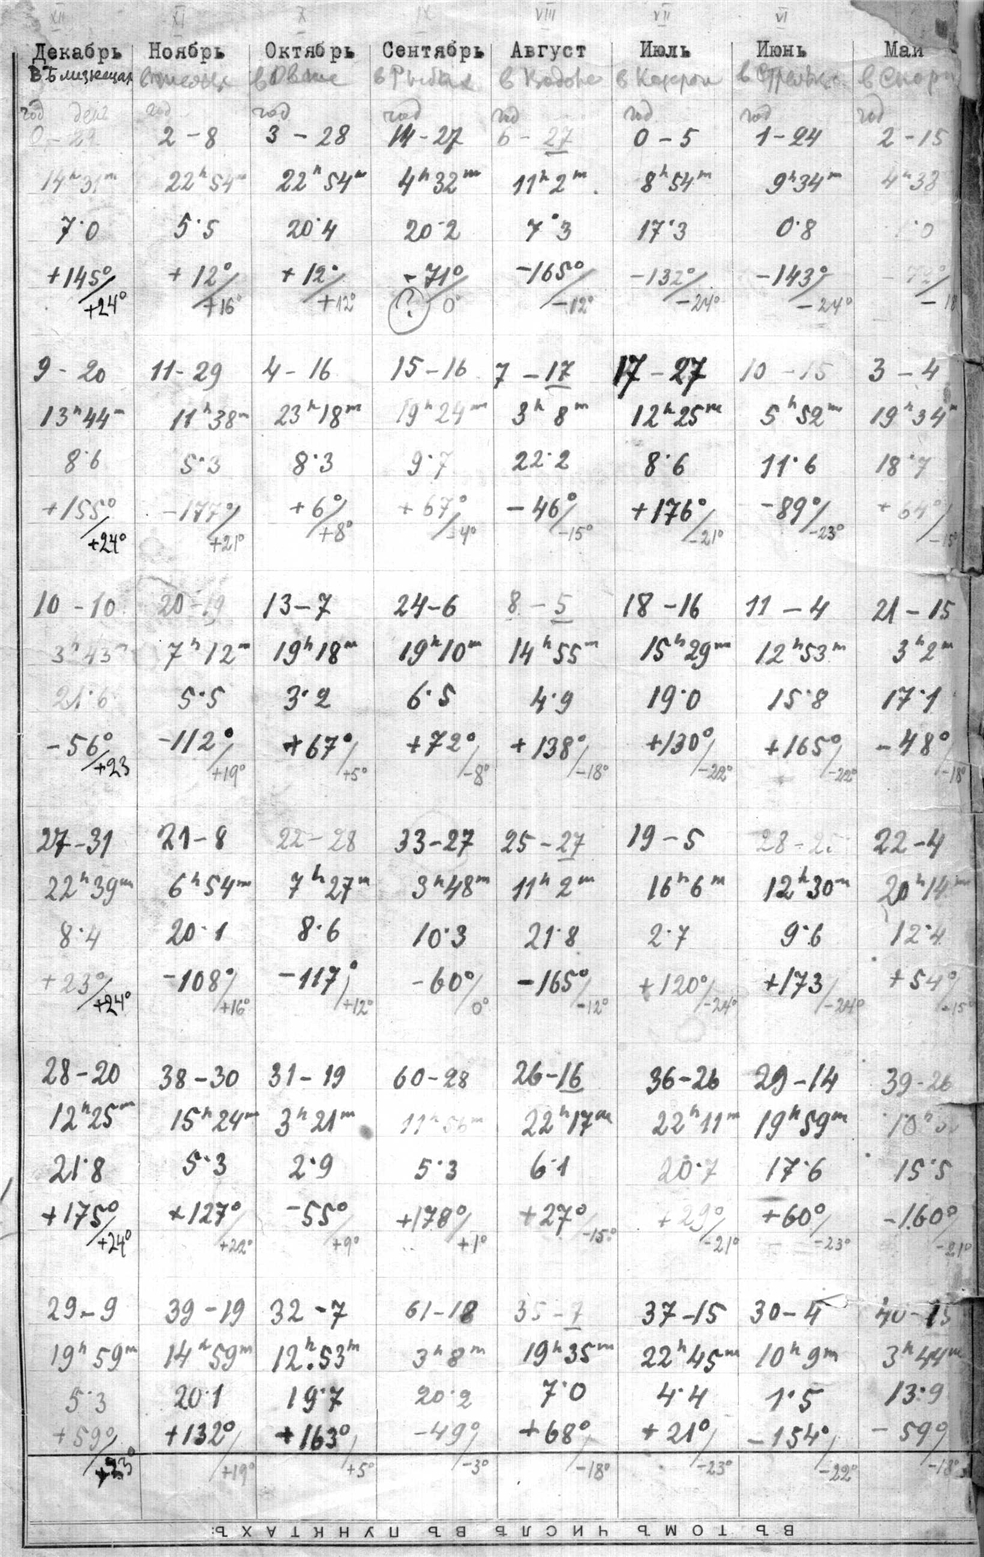 XII XI X IX VIII VII VI
Декабрь Ноябрь Октябрь Сентябрь Август Июль Июнь Май
в Близнецах в Овне в Рыбах в Стрельце
год дена год год год год год год год
0-29 2-8 3-28 14-27 6-27 0-5 1-24 2-15
14ʰ31ᵐ 22ʰ54ᵐ 22ʰ54ᵐ 4ʰ32ᵐ 11ʰ2ᵐ 8ʰ54ᵐ 9ʰ34ᵐ 4ʰ38
7·0 5·5 20·4 20·2 7·3 17·3 0·8
+145°/+24° +12°/+16° +12°/+12° -71°/0° -165°/-12° -132°/-24° -143°/-24°
(?)
9-20 11-29 4-16 15-16 7-17 17-27 10-15 3-4
13ʰ44ᵐ 11ʰ38ᵐ 23ʰ18ᵐ 19ʰ24ᵐ 3ʰ8ᵐ 12ʰ25ᵐ 5ʰ52ᵐ 19ʰ34ᵐ
8·6 5·3 8·3 9·7 22·2 8·6 11·6 18·7
+155°/+24° -177°/+21° +6°/+8° +67°/-4° -46°/-15° +176°/-21° -89°/-23° +64°/-15°
10-10 20-19 13-7 24-6 8-5 18-16 11-4 21-15
3ʰ43ᵐ 7ʰ12ᵐ 19ʰ18ᵐ 19ʰ10ᵐ 14ʰ55ᵐ 15ʰ29ᵐ 12ʰ53ᵐ 3ʰ2ᵐ
21·6 5·5 3·2 6·5 4·9 19·0 15·8 17·1
-56°/+23 -112°/+19° +67°/+5° +72°/-8° +138°/-18° +130°/-22° +165°/-22° -48°/-18°
27-31 21-8 22-28 33-27 25-27 19-5 22-4
22ʰ39ᵐ 6ʰ54ᵐ 7ʰ27ᵐ 3ʰ48ᵐ 11ʰ2ᵐ 16ʰ6ᵐ 12ʰ30ᵐ 20ʰ14ᵐ
8·4 20·1 8·6 10·3 21·8 2·7 9·6 12·4
+23°/+24° -108°/+16° -117°/+12° -60°/0° -165°/-12° +120°/-24° +173/-24° +54°/-15°
28-20 38-30 31-19 60-28 26-16 36-26 29-14 39-26
12ʰ25ᵐ 15ʰ24ᵐ 3ʰ21ᵐ 11ʰ56ᵐ 22ʰ17ᵐ 22ʰ11ᵐ 19ʰ59ᵐ
21·8 5·3 2·9 5·3 6·1 20·7 17·6 15·5
+175°/+24° +127°/+22° -55°/+9° +178°/+1° +27°/-15° +29°/-21° +60°/-23° -160°/-21°
29-9 39-19 32-7 61-18 35-7 37-15 30-4 40-15
19ʰ59ᵐ 14ʰ59ᵐ 12ʰ53ᵐ 3ʰ8ᵐ 19ʰ35ᵐ 22ʰ45ᵐ 10ʰ9ᵐ 3ʰ44ᵐ
5·3 20·1 19·7 20·2 7·0 4·4 1·5 13·9
+59°/+23° +132°/+19° +163°/+5° -49°/-3° +68°/-18° +21°/-23° -154°/-22° -59°/-18°
ВЪ ТОМЪ ЧИСЛѢ ВЪ ПУНКТАХЪ: